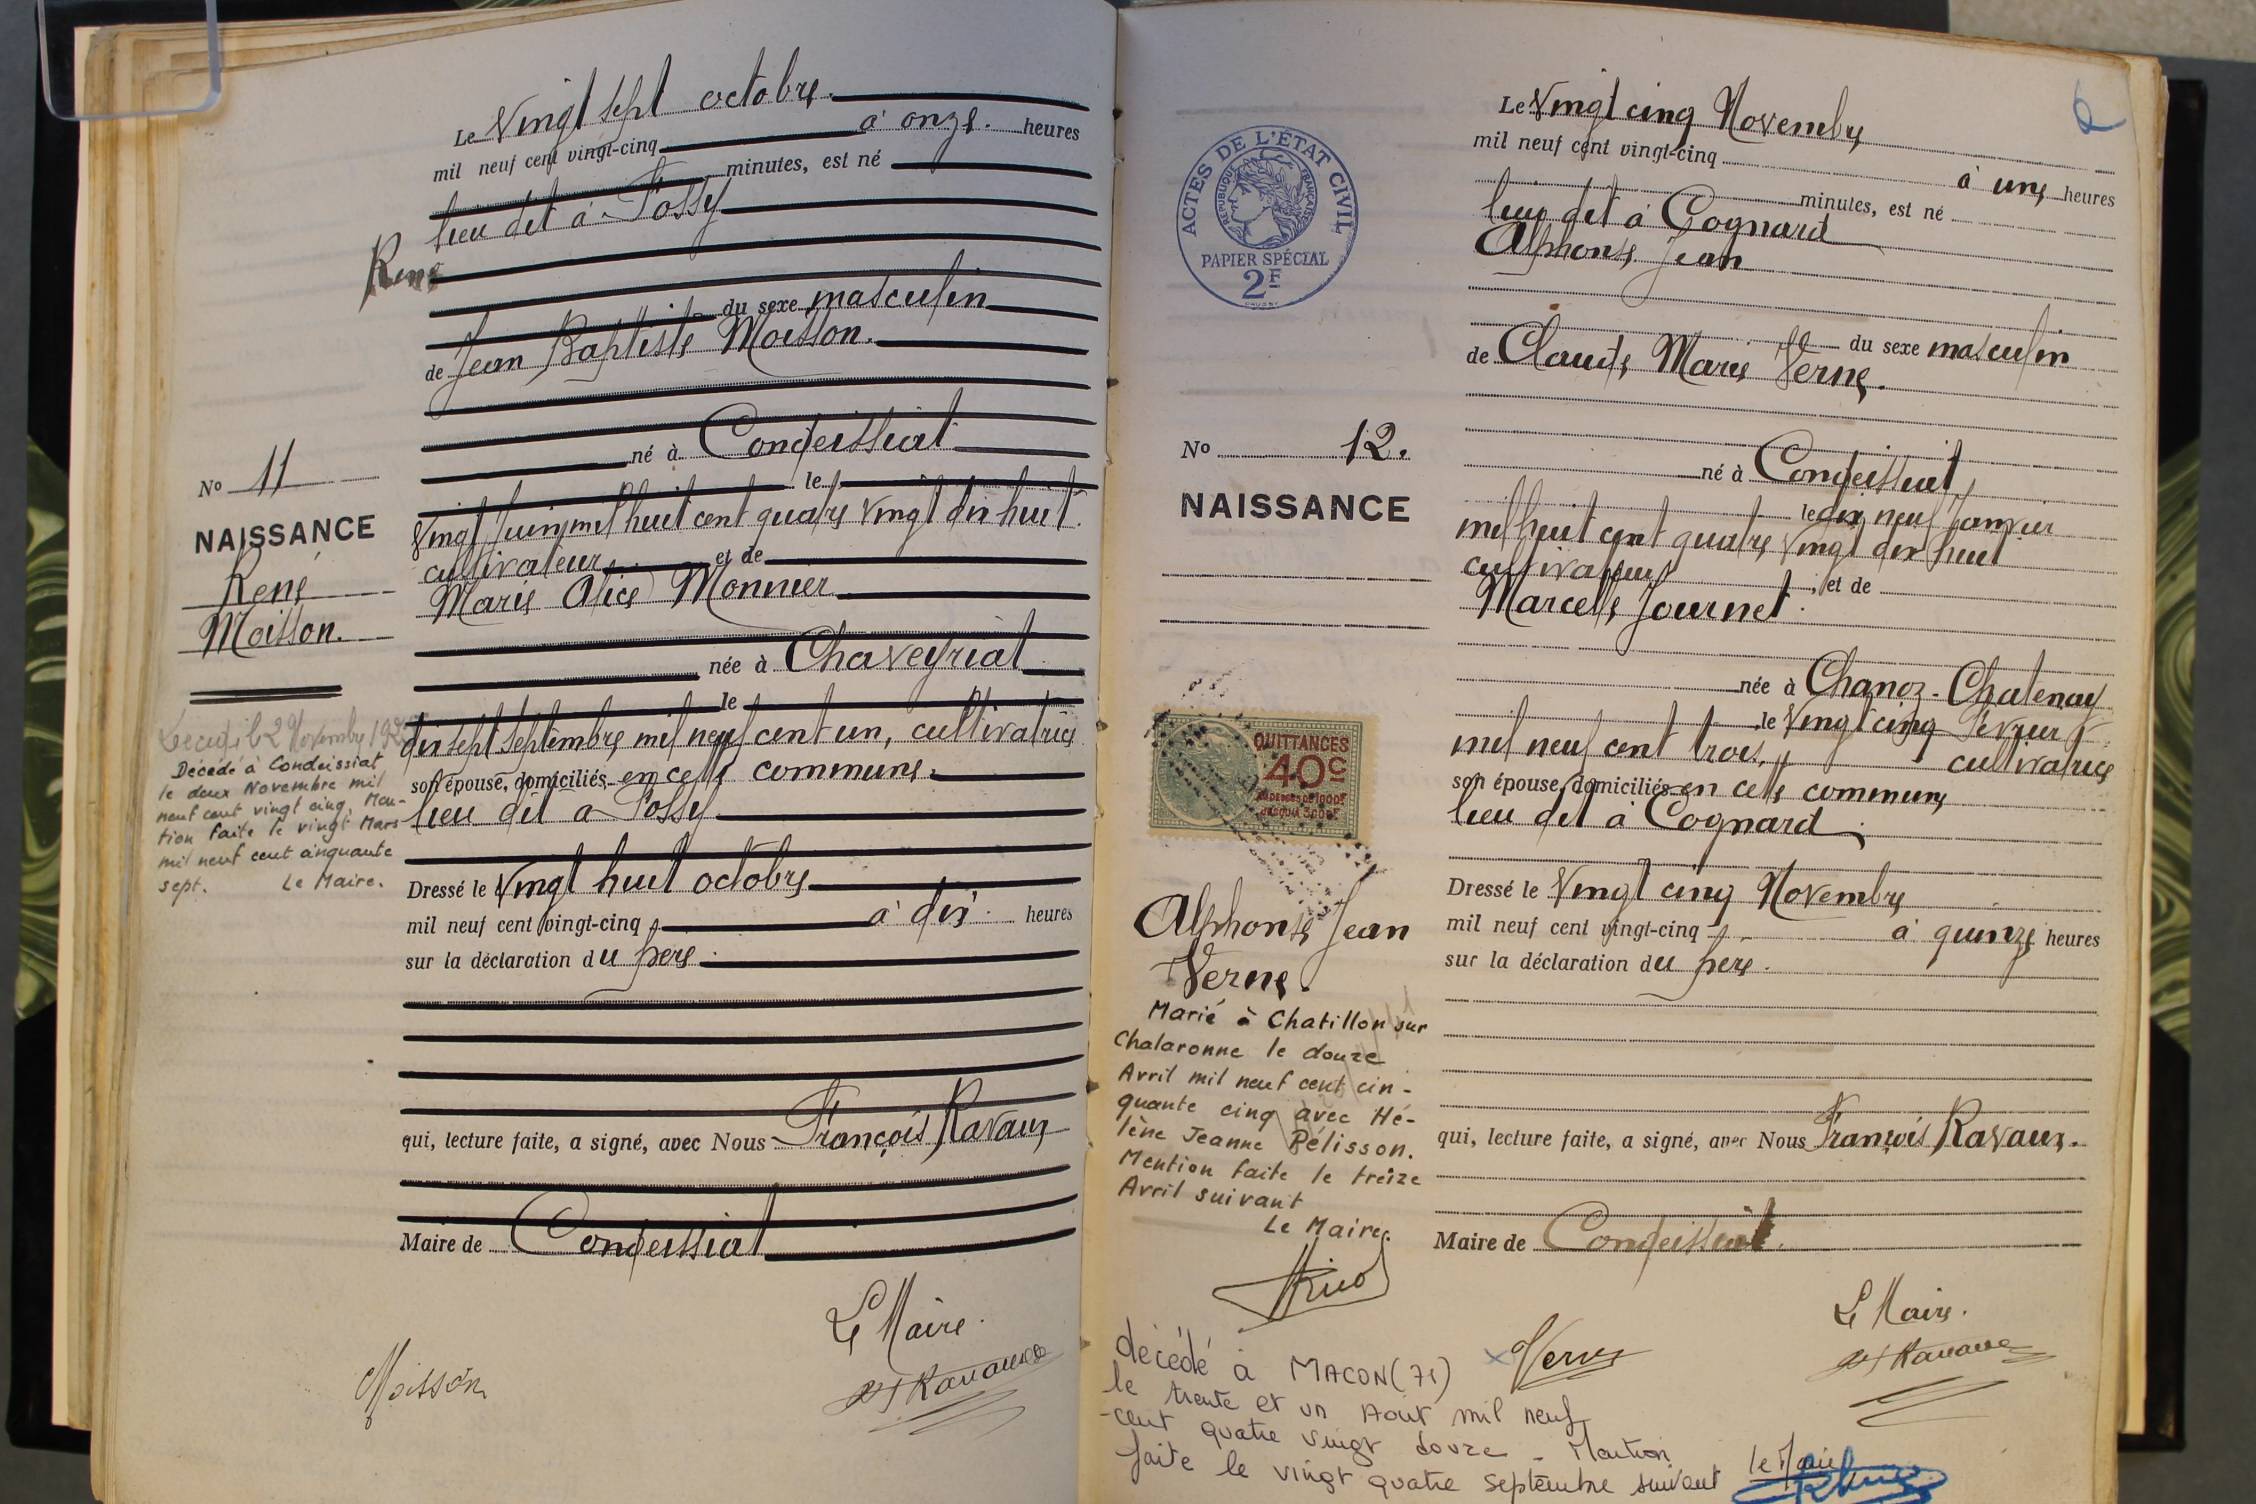 Le Vingt sept octobre
mil neuf cent vingt-cinq à onze heures
minutes, est né
lieu dit à Possy
René
du sexe masculin
de Jean Baptiste Moisson.
né à Condeissiat
le
Vingt Juin mil huit cent quatre vingt dix huit.
cultivateur et de
Marie Alice Monnier
née à Chaveyriat
le
dix sept septembre mil neuf cent un, cultivatrice
son épouse, domiciliés en cette commune.
lieu dit à Possy
Dressé le Vingt huit octobre
mil neuf cent vingt-cinq à dix heures
sur la déclaration du père.
qui, lecture faite, a signé, avec Nous François Ravaux
Maire de Condeissiat
Le Maire.
Moisson
Ravaux
No 11
NAISSANCE
René
Moisson.
Décédé le 2 Novembre 1925
Décédé à Condeissiat
le deux Novembre mil
neuf cent vingt cinq, Men-
tion faite le vingt Mars
mil neuf cent cinquante
sept. Le Maire.
6
Le Vingt cinq Novembre
mil neuf cent vingt-cinq
à une heures
minutes, est né
lieu dit à Cognard
Alphonse Jean
du sexe masculin
de Claude Marie Verne.
né à Condeissiat
le dix neuf Janvier
mil huit cent quatre vingt dix huit
cultivateur
et de
Marcelle Journet.
née à Chanoz-Chatenay
le Vingt cinq Février
mil neuf cent trois, cultivatrice
son épouse, domiciliés en cette commune
lieu dit à Cognard
Dressé le Vingt cinq Novembre
mil neuf cent vingt-cinq à quinze heures
sur la déclaration du père.
qui, lecture faite, a signé, avec Nous François Ravaux.
Maire de Condeissiat.
Le Maire.
Verne
Ravaux
ACTES DE L'ÉTAT CIVIL
RÉPUBLIQUE FRANÇAISE
PAPIER SPÉCIAL
2F
No 12.
NAISSANCE
QUITTANCES
40c
Alphonse Jean
Verne.
Marié à Chatillon sur
Chalaronne le douze
Avril mil neuf cent cin-
quante cinq avec Hé-
lène Jeanne Pélisson.
Mention faite le treize
Avril suivant
Le Maire.
décédé à MACON (71)
le trente et un Août mil neuf
cent quatre vingt douze - Mention
faite le vingt quatre septembre suivant le Maire